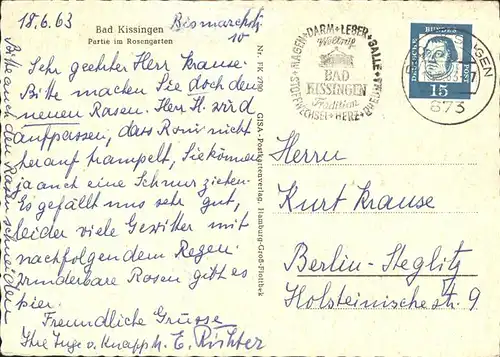 18.6.63
Bad Kissingen
Partie im Rosengarten
Bismarckstr.
10
Sehr geehrter Herr Krause.
Bitte machen Sie doch den
neuen Rasen. Herr H. wird
aufpassen, dass Romi nicht
herauf trampelt, Sie können
ja auch eine Schnur ziehen.
Es gefällt uns sehr gut,
leider viele Gewitter mit
nachfolgendem Regen.
Wunderbare Rosen gibt es
hier.
Freundliche Grüsse
Ihre Inge v. Knapp u. E. Richter
Bitte auch den Rasen schneiden
Nr. FK 2780
GISA-Postkartenverlag, Hamburg-Groß-Flottbek
MAGEN + DARM + LEBER + GALLE
STOFFWECHSEL + HERZ
Weltruf
BAD
KISSINGEN
Tradition
DEUTSCHE BUNDESPOST
15
873
Herrn
Kurt Krause
Berlin-Steglitz
Holsteinische str. 9